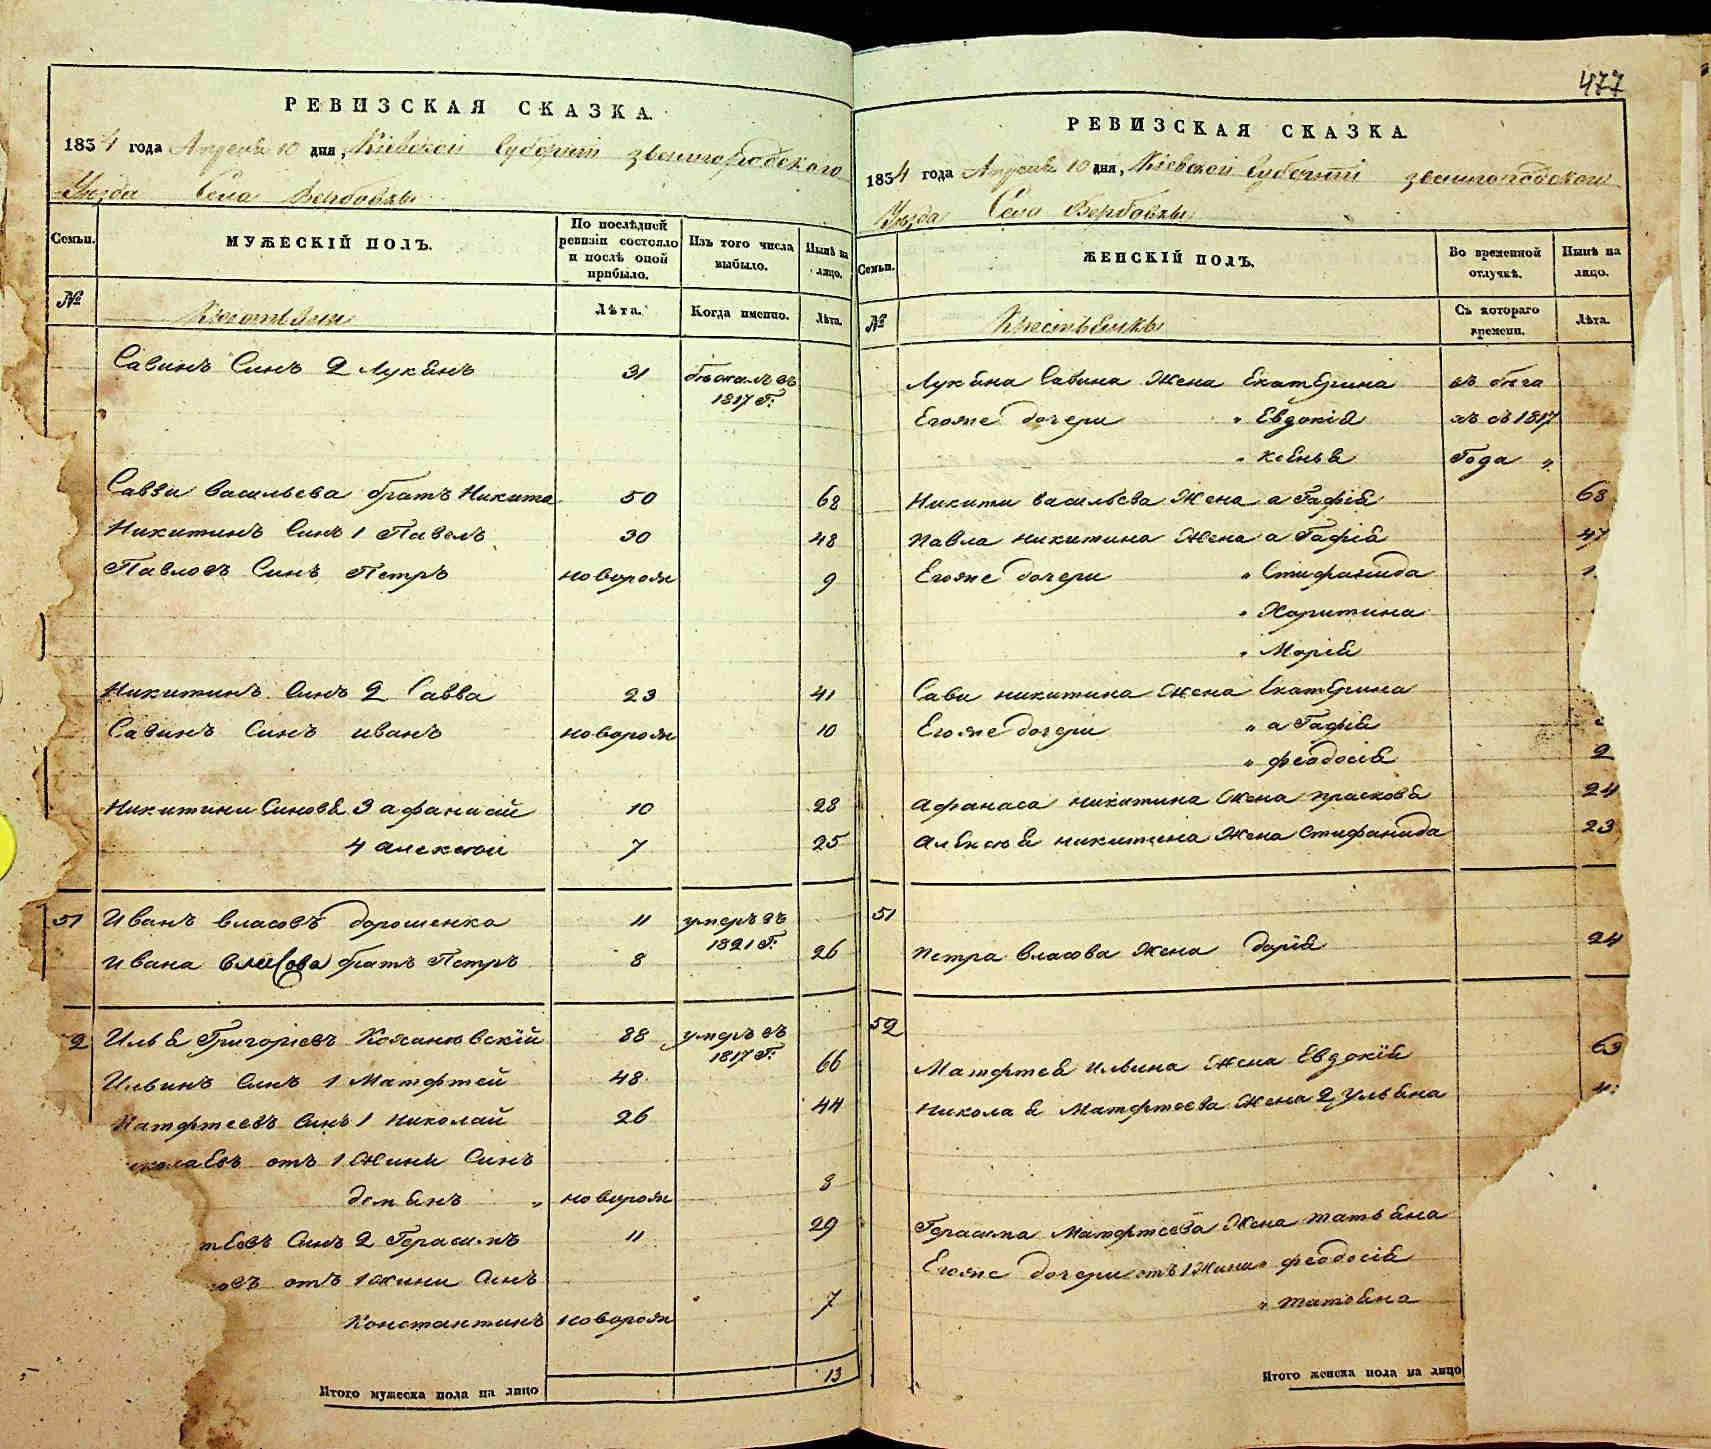 477
РЕВИЗСКАЯ СКАЗКА.
1834 года Апреля 10 дня, Кіевской Губерніи звенигородского
Уезда Села Вербовки
Семьи.
МУЖЕСКІЙ ПОЛЪ.
По послѣдней ревизіи состояло и послѣ оной прибыло.
Изъ того числа выбыло.
Нынѣ на лицо.
№
Крестьяни
Лѣта.
Когда именно.
Лѣта.
Савинъ Синъ 2 Лукянъ 31 бежалъ въ
1817 Г:
Савви васильева братъ Никита 50 68
Никитинъ Синъ 1 Павелъ 30 48
Павловъ Синъ Петръ новорож 9
Никитинъ Синъ 2 Савва 23 41
Савинъ Синъ иванъ новорож 10
Никитини Синовя 3 афанасий 10 28
4 алексей 7 25
51 Иванъ власовъ дорошенко 11 умеръ въ
1821 Г:
Ивана власова братъ Петръ 8 26
2 Илья Григоріевъ Кожановскій 88 умеръ въ
1817 Г:
Ильинъ Синъ 1 Матфтей 48 66
Матфтеевъ Синъ 1 Николай 26 44
колаевъ отъ 1 жини Синъ
демянъ „ новорож 8
тѣевъ Синъ 2 Герасимъ 11 29
овъ отъ 1 жини Синъ
Константинъ новорож 7
Итого мужеска пола на лицо 13
РЕВИЗСКАЯ СКАЗКА.
1834 года Апреля 10 дня, Кіевской Губерніи звенигородской
Уезда Села Вербовки
Семьи.
ЖЕНСКІЙ ПОЛЪ.
Во временной отлучкѣ.
Нынѣ на лицо.
№
Крестьянки
Съ котораго времени.
Лѣта.
Лукяна Савина Жена Екатерина въ бега
Егоже дочери „ Евдокія хъ съ 1817
„ Ксенья Года „
Никити васильева Жена а Гафія 68
Павла никитина Жена а Гафія 47
Егоже дочери „ Стифанида 1
„ Харитина
„ Марія
Сави никитина Жена Екатерина
Егоже дочери „ а Гафія
„ феодосія 2
Афанаса никитина Жена прасковя 24
Алексея никитина Жена Стифанида 23
51
Петра власова Жена дарія 24
52
Матфтея ильина Жена Евдокія 63
Николая Матфтеева Жена 2 ульяна 4
Герасима Матфтеева Жена татьяна
Егоже дочери отъ 1 Жини „ феодосія
„ татьяна
Итого женска пола на лицо